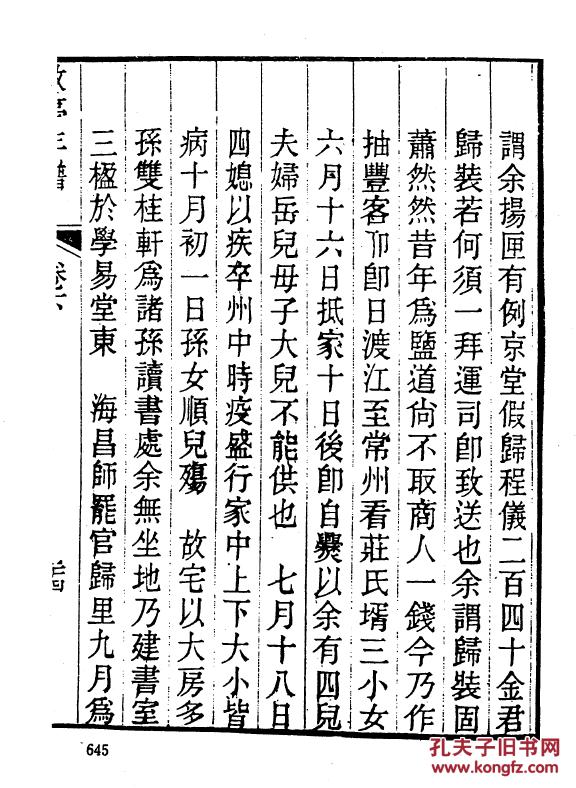 謂余揚匣有例京堂假歸程儀二百四十金君
歸裝若何須一拜運司卽致送也余謂歸裝固
蕭然然昔年爲鹽道尙不取商人一錢今乃作
抽豐客卽日渡江至常州看莊氏壻三小女
六月十六日抵家十日後卽自爨以余有四兒
夫婦岳兒毋子大兒不能供也 七月十八日
四媳以疾卒州中時疫盛行家中上下大小皆
病十月初一日孫女順兒殤 故宅以大房多
孫雙桂軒爲諸孫讀書處余無坐地乃建書室
三楹於學易堂東 海昌師罷官歸里九月爲
年譜 卷下
645
孔夫子旧书网
www.kongfz.com